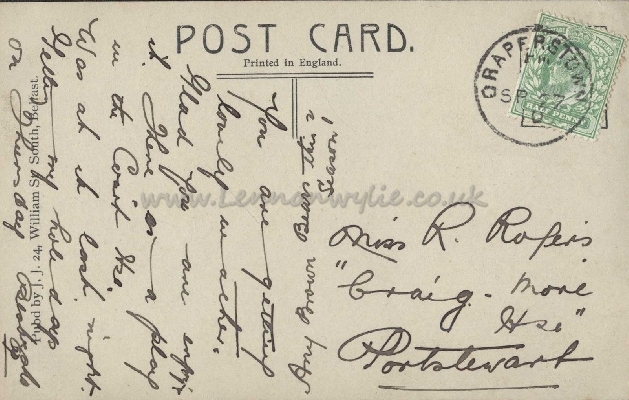 POST CARD.
Printed in England.
DRAPERSTOWN
SP 27
HALF PENNY
You are getting
lovely weather.
Glad you are enjoy'g
it. There is a play
in the Court Hse.
Was at it last night.
my holidays
on Thursday
Any Brown Bears
this Season
Miss R. Rogers
"Craig-more
Hse"
Portstewart
Pubd by J.J. 24, William St. South, Belfast.
www.Lennonwylie.co.uk